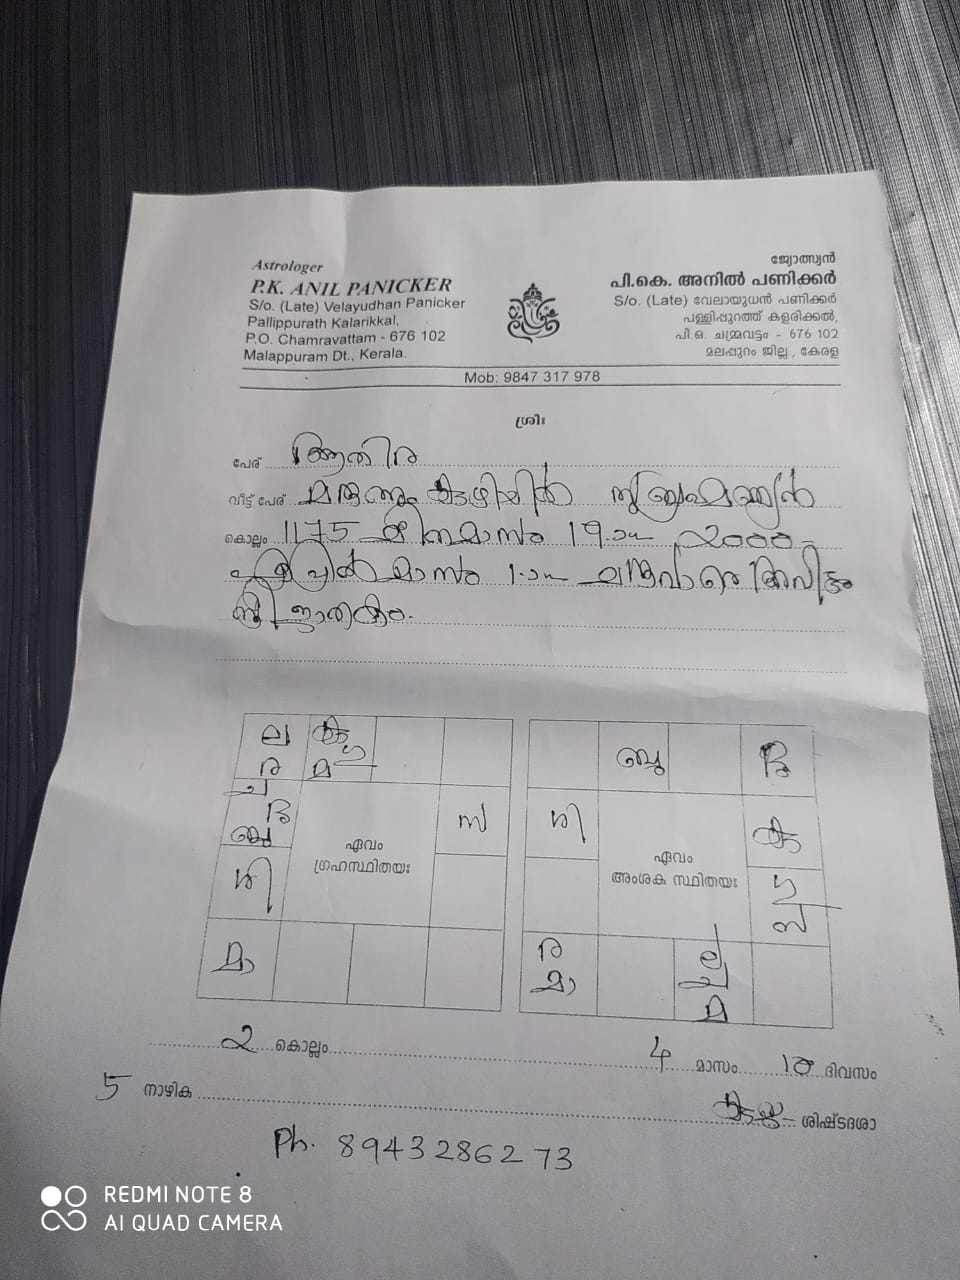 Astrologer
P.K. ANIL PANICKER
S/o. (Late) Velayudhan Panicker
Pallippurath Kalarikkal,
P.O. Chamravattam - 676 102
Malappuram Dt., Kerala.
ജ്യോത്സ്യൻ
പി.കെ. അനിൽ പണിക്കർ
S/o. (Late) വേലായുധൻ പണിക്കർ
പള്ളിപ്പുറത്ത് കളരിക്കൽ,
പി.ഒ. ചമ്രവട്ടം - 676 102
മലപ്പുറം ജില്ല., കേരള
Mob: 9847 317 978
ശ്രീഃ
പേര് ആതിര
വീട്ട് പേര്
കൊല്ലം 1175 മീനമാസം 19 2000
ഏപ്രിൽ മാസം 1
ജാതകം.
ല കു ഗു
ര മ
ച
ബു
സ
ശി
മാ
ഏവം
ഗ്രഹസ്ഥിതയഃ
ബു
ശി
ഗു
സ
ര
മാ
ല
ച
മ
ഏവം
അംശക സ്ഥിതയഃ
2 കൊല്ലം 4 മാസം 18 ദിവസം
5 നാഴിക ശിഷ്ടദശാ
Ph. 8943286273
REDMI NOTE 8
AI QUAD CAMERA